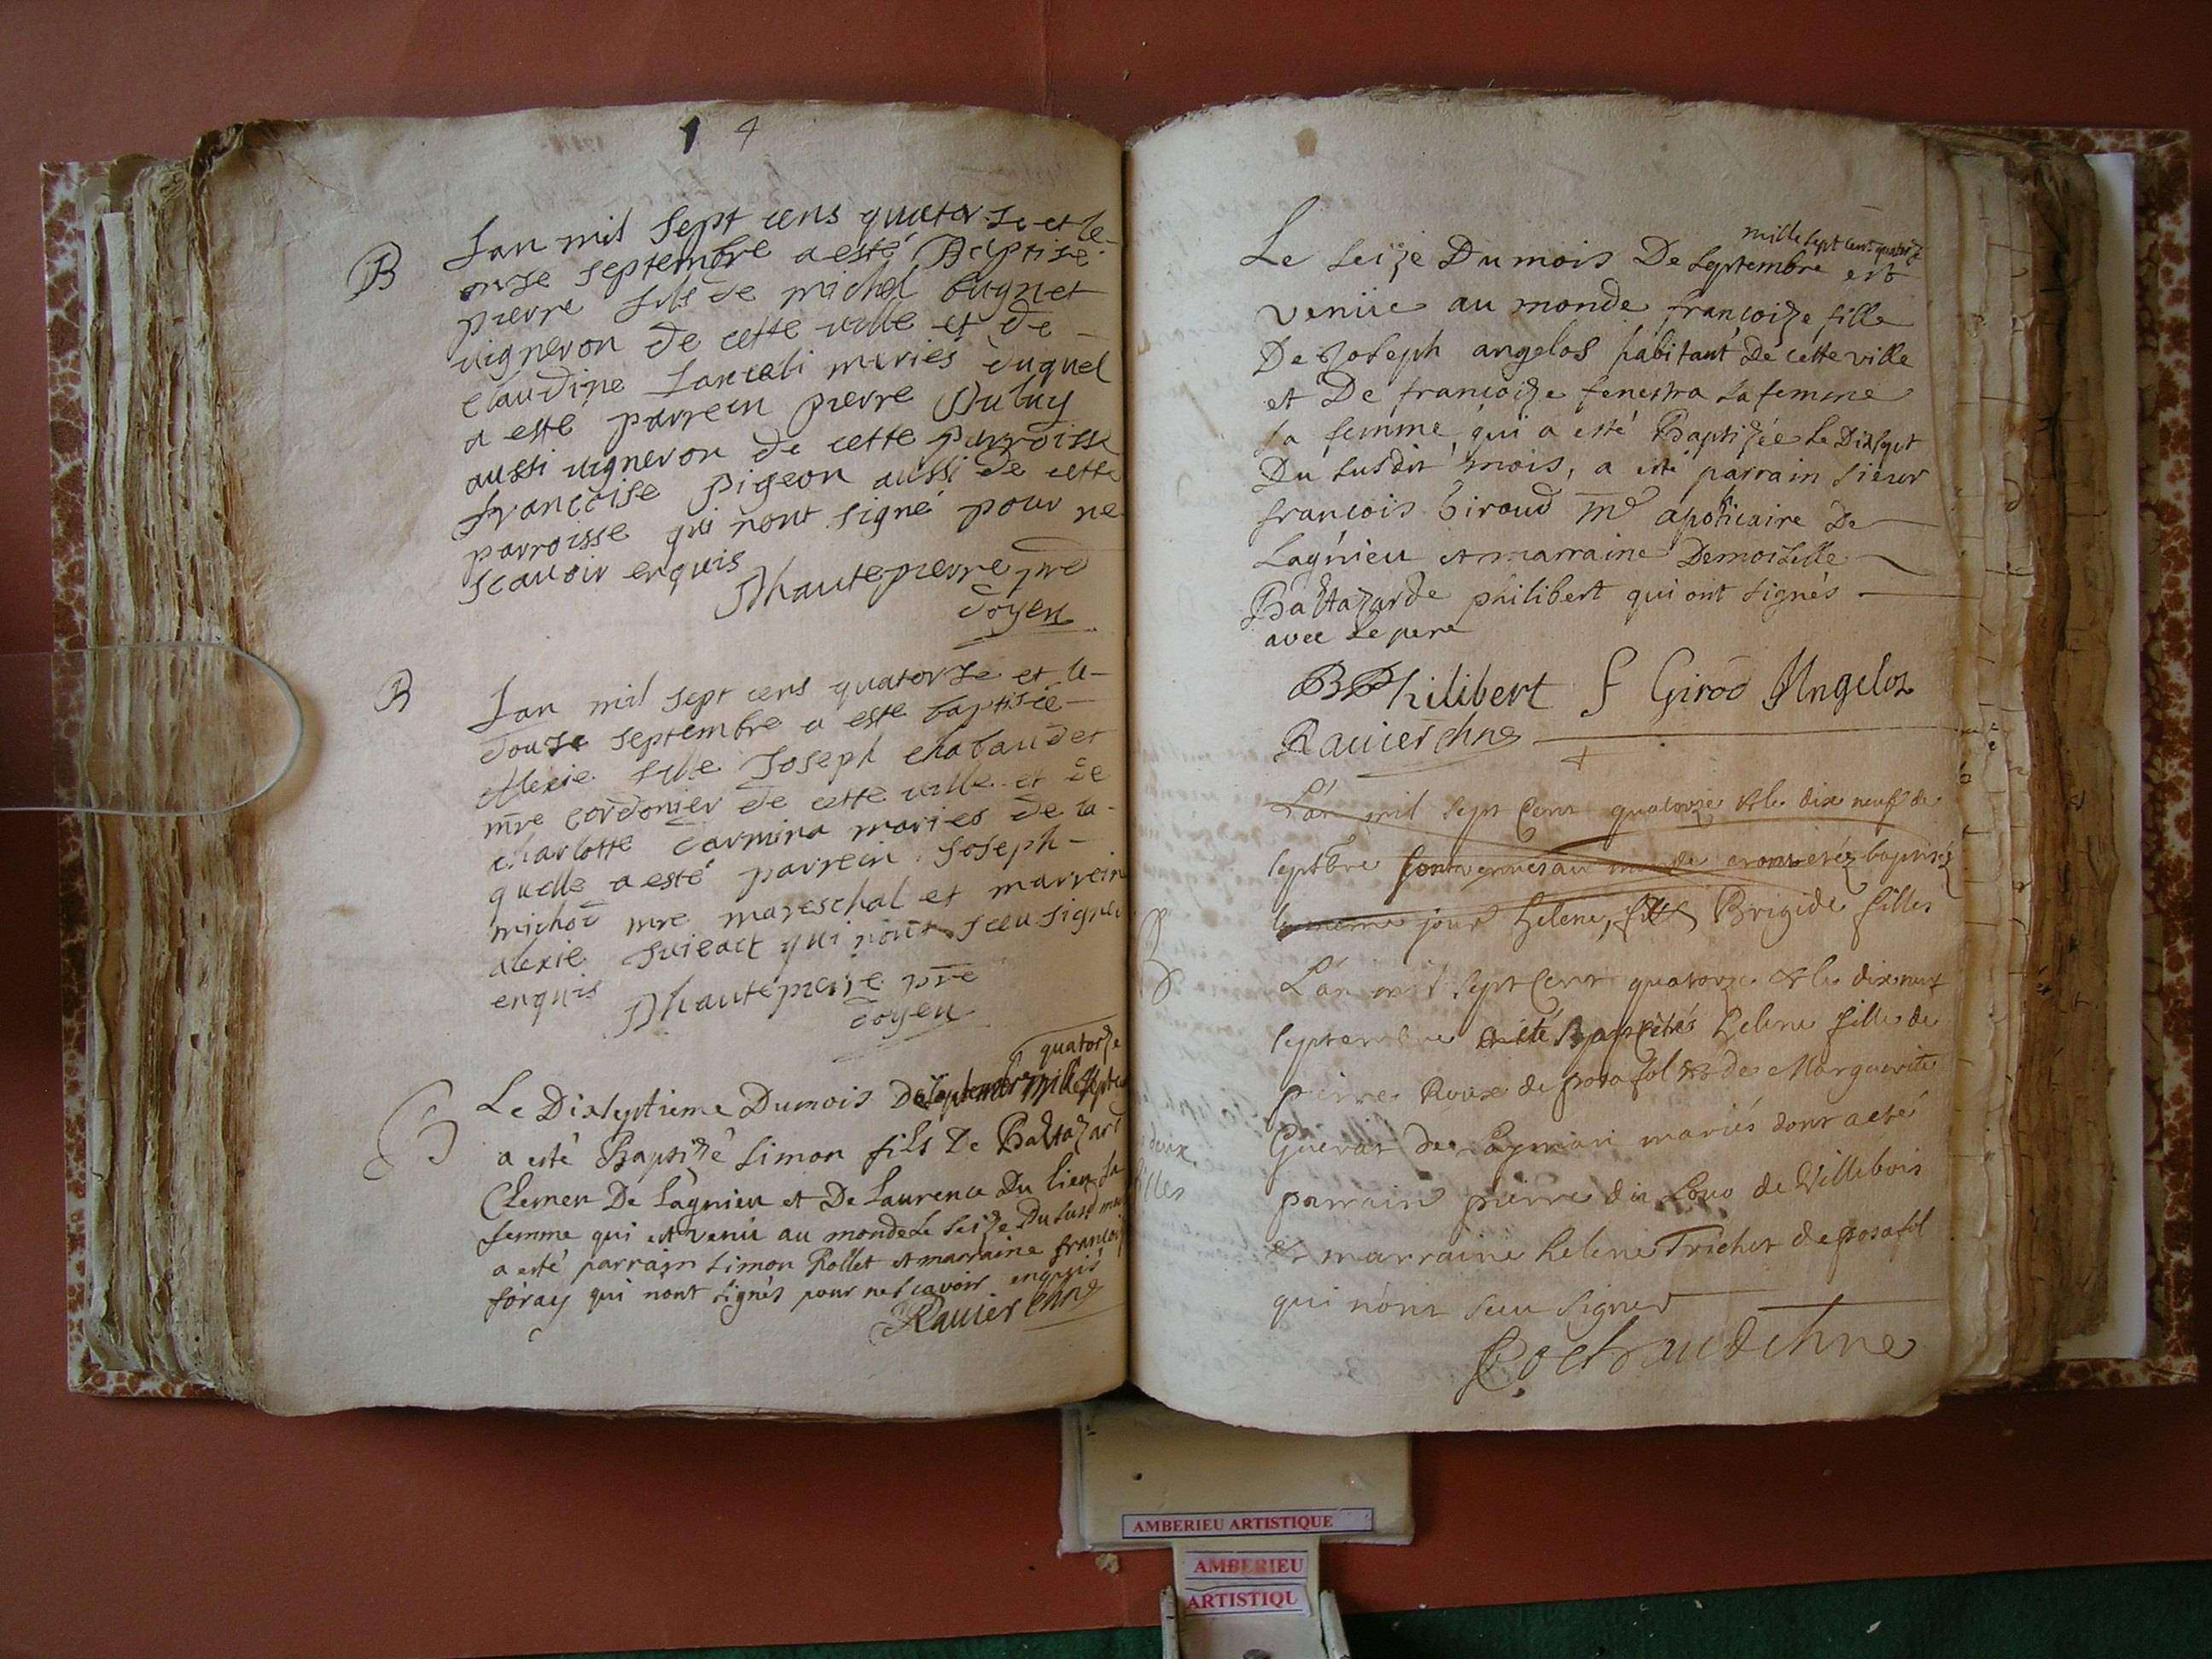 1 4
B
Lan mil sept cens quatorse et le
onse septembre a esté Baptise
pierre fils de michel bugnet
vigneron de cette ville et de
claudine mariés duquel
a esté parrein pierre Dubuy
aussi vigneron de cette parroisse
françoise pigeon aussi de cette
parroisse qui nont signé pour ne
scauoir enquis
Dhautepierre pre
doyen
B
Lan mil sept cens quatorse et le
douse septembre a esté baptisée
Alexie fille Joseph chabaudet
mre cordonier de cette ville et de
charlotte carmina mariés de la
quelle a esté parrein Joseph
michod mre mareschal et marrein
alexie qui nont sceu signer
enquis
Dhautepierre pre
doyen
quatorze
B
Le Dixseptieme Dumois De septembre mille sept cent
a esté Baptizé Simon fils De Baltazard
Clemen De Lagnieu et De Laurence Du lieu sa
femme qui est venu au monde Le seize Du susd mois
a esté parrain Simon Rollet et marraine françoise
foray qui n'ont signés pour ne scavoir enquis
Rauier chne
mille sept cent quatorze
Le seize Du mois De Septembre est
venüe au monde françoize fille
De Joseph angelos habitant De cette ville
et De françoize fenestra sa femme
sa femme qui a esté Baptizée Le Dixsept
Du susdit mois, a esté parrain sieur
françois Giroud md apoticaire De
Lagnieu et marraine Demoiselle
Baltazarde philibert qui ont signés
avec le pere
BPhilibert f Girod Angeloz
Rauier chne
L'an mil sept Cent quatorze & le dix neuf de
septbre sont venues au monde et ont etéz baptiséz
le meme jour helene, Brigide filles
B
L'an mil sept Cent quatorze & le dix neuf
septembre a eté Baptisés helene fille de
pierre Roux de posafol & de Marguerite
Guerat de mariés dont a esté
deux
filles
parrain pierre du Louo de Villebois
et marraine helene Trichet de posafol
qui n'ont sceu signer
Cochaud chne
AMBERIEU ARTISTIQUE
AMBERIEU
ARTISTIQU